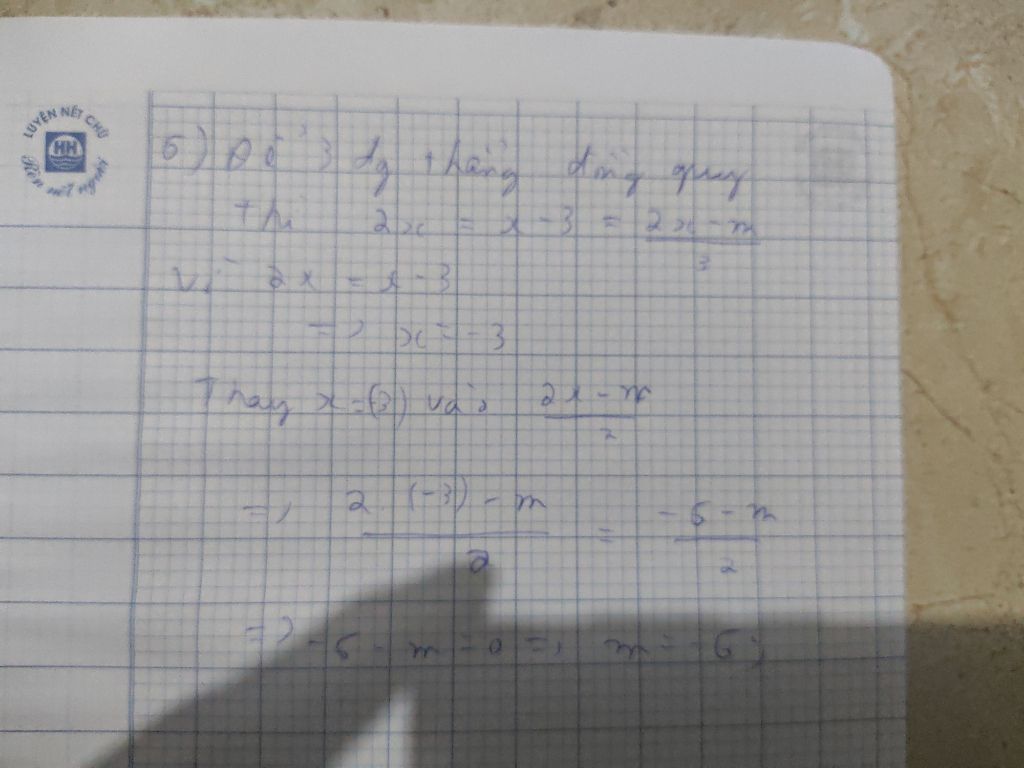 LUYỆN NÉT CHỮ
HH
Rèn nết người
5) Để 3 dg thẳng đồng quy
thì 2x = x - 3 = \frac{2x - m}{3}
Vì 2x = x - 3
=> x = -3
Thay x = (3) vào \frac{2x - m}{2}
=> \frac{2 . (-3) - m}{2} = \frac{-6 - m}{2}
=> -6 - m = 0 => m = -6;